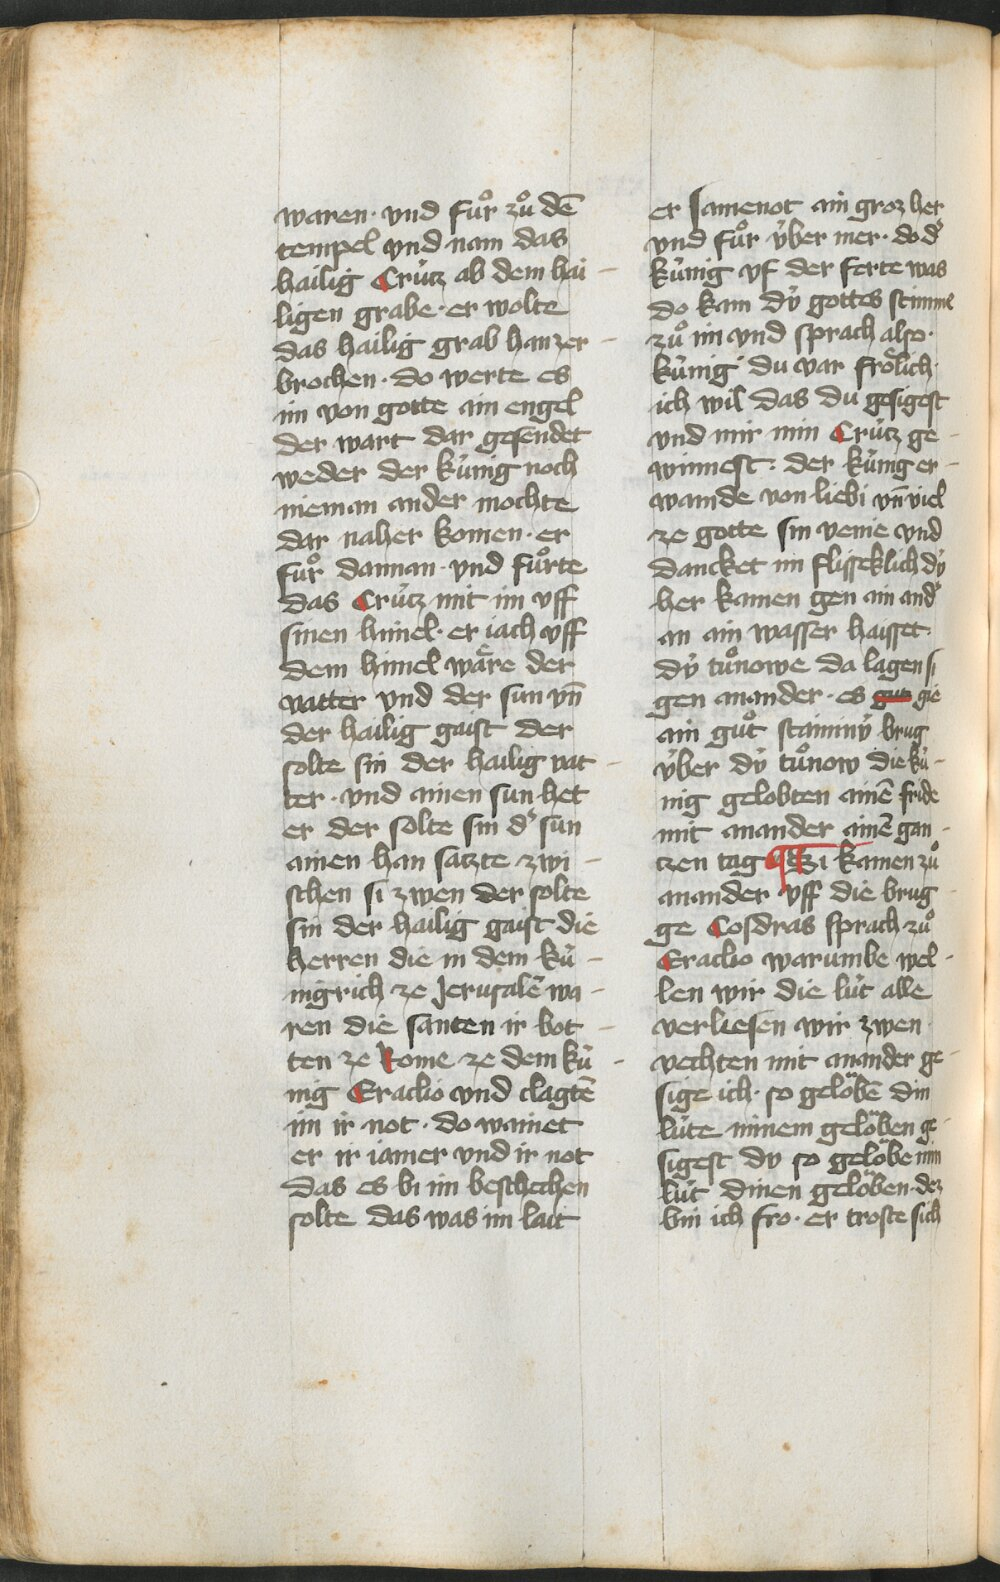 waren · vnd fuͦr zuͦ dē
tempel vnd nam das
hailig Crútz ab dem hai-
ligen grabe · er wolte
das hailig grab han zer-
brochen · do werte es
im von gotte ain engel
der wart dar gesendet
weder der kúnig noch
nieman ander mochte
dar naher komen · er
fuͦr dannan · vnd fuͦrte
das Crútz mit im vff
sinen himel · er iach vff
dem himel waͤre der
vatter vnd der sun vn̄
der hailig gaist der
solte sin der hailig vat-
ter · vnd ainen sun het
er der solte sin d' sun
ainen han satzte zwi-
schen si zwen der solte
sin der hailig gaist die
herren die in dem kú-
nigrich ze Jerusalē wa-
ren die santen ir bot-
ten ze Rome ze dem kú-
nig Eraclio vnd clagtē
im ir not · do wainet
er ir iamer vnd ir not
das es bi im beschechen
solte das was im lait
er samenot ain groz her
vnd fuͦr v́ber mer · do d'
kúnig vf der ferte was
do kam dý gottes stimme
zuͦ im vnd sprach also ·
kúnig du var froͤlich ·
ich wil das du gesigest
vnd mir min Crútz ge-
winnest · der kúnig er-
wainde von liebi vn̄ viel
ze gotte sin venie vnd
dancket im flisseklich dý
her kamen gen ain and'
an ain wasser haisset ·
dý tuͦnowe da lagen si
gen ananander · es gie
ain guͦt staininý brug
v́ber dý tuͦnow die kú-
nig gelobten ainē fride
mit ananander ainē gan-
tzen tag ¶ Si kamen zuͦ
ananander vff die brug-
ge Cosdras sprach zuͦ
Eraclio warumbe wel-
len wir die lút alle
verliesen wir zwen
vechten mit ananander ge-
sige ich · so geloͤbē din
lúte minem geloͤben ge-
sigest dv so geloͤbe min
lút dinen geloͤben · dez
bin ich fro · er troste sich